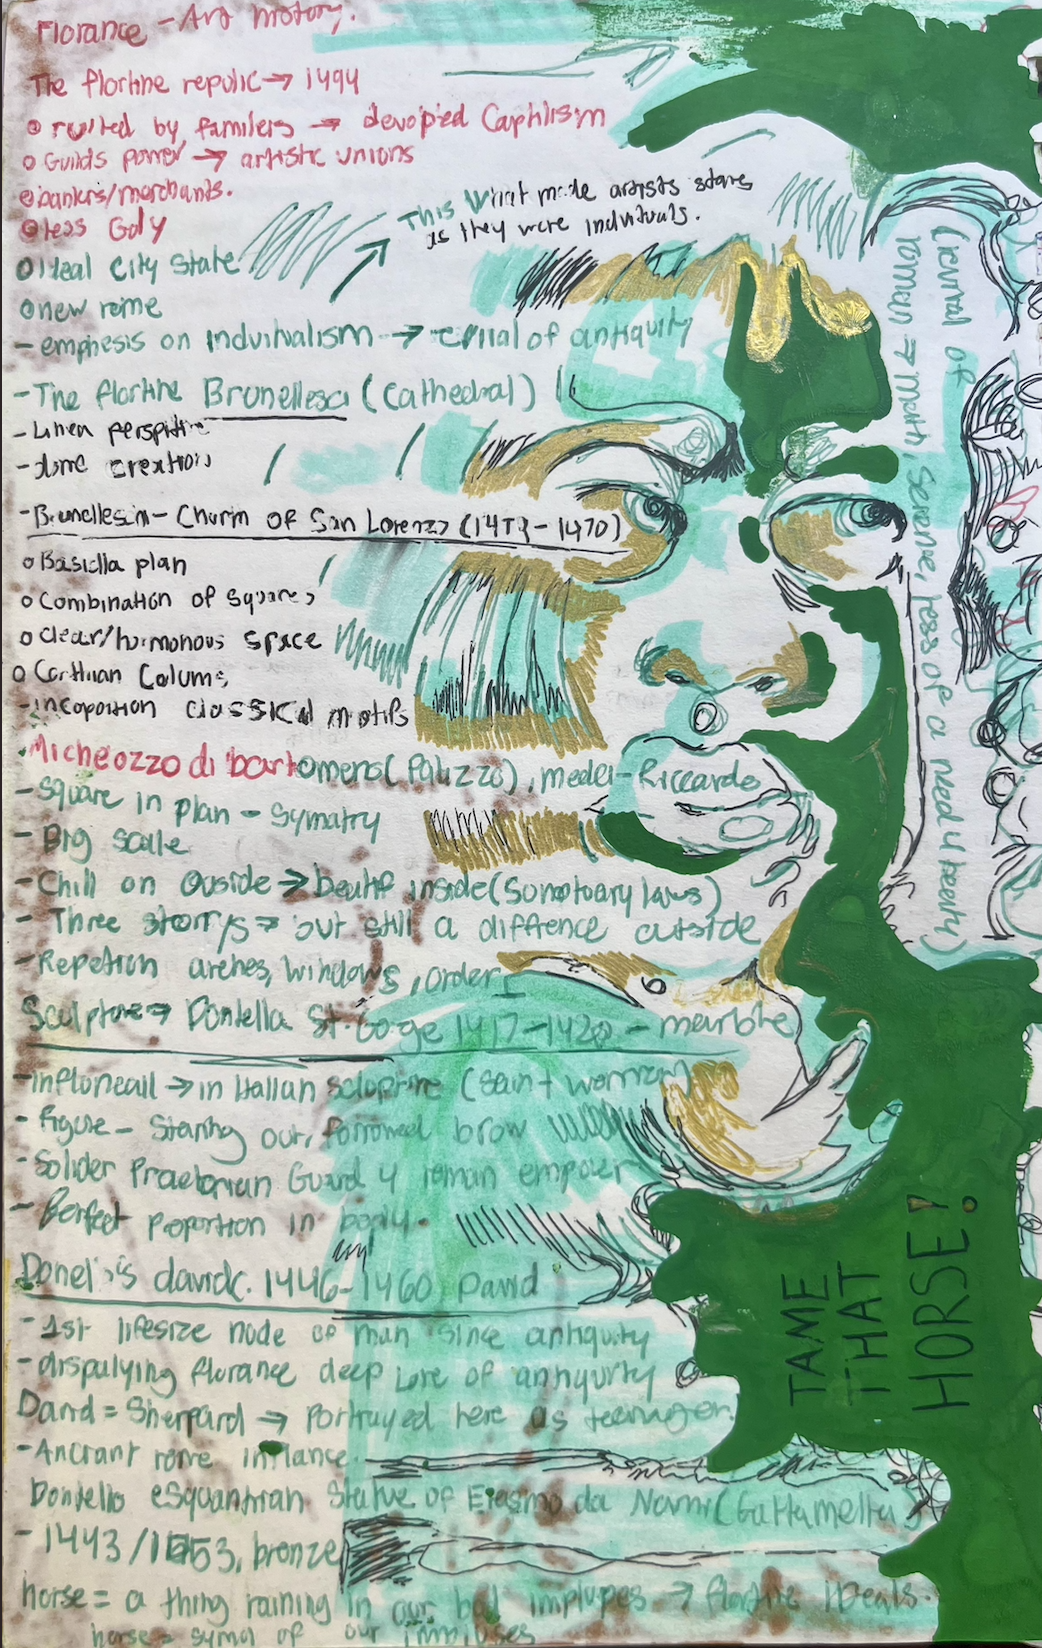 Florance - Art History.
The flortine repulic → 1494
rulled by familers → devopied Capitilism
Guilds power → artistic unions
bankers/merchants.
less Gody
Ideal City State
This what made artists stars
as they were individuals.
new rome
- emphesis on induvinalism → revival of antiquity
(revival of
roman → math, serene, less of a
- The flortine Brunellesci (Cathedral)
- Linen perspitive
- dome creation
- Brunellescin - Church of San Lorenzo (14 - 1470)
Basiclla plan
Combination of squares
Clear/hormonous space
Corthian Colums
- incoportion classical motifs
Micheozzo di bartomero (Palizzo), medei - Riccardo
- Square in plan - Symatry
- Big scale
- Chill on Ouside → beutif inside (Sumotuary laws)
- Three storrys → but still a diffrence outside
- Repetion arches, windows, order
Sculpture → Dontella St. Goge 1417-1420 - marble
- in Itallan sculptrure (saint worrior)
- figure - Staring out, forrowed brow
- Solider Praetorian Guard 4 roman empoier
- Perfect proportion in body.
david. 1446-1460 David
- 1st lifesize node of man since antiquity
- dispulying florance deep love of antiquity
David = Sherpard → Portrayed here as teenager.
- Ancrant rome inflance
Dontello esquantrian Statue of Erasmo da Narni (Gattamelta)
- 1443/1453, bronze
horse = a thing raining in our bad implupes → flortine ideals.
horse = symol of our impluses
TAME
THAT
HORSE!